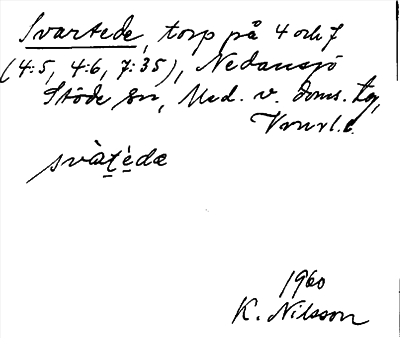 Svartede, torp på 4 och 7
(4:5, 4:6, 7:35), Nedansjö
Stöde sn, Med. v. doms. tg,
Vnrl.l.
svàtè̱dæ
1960
K. Nilsson